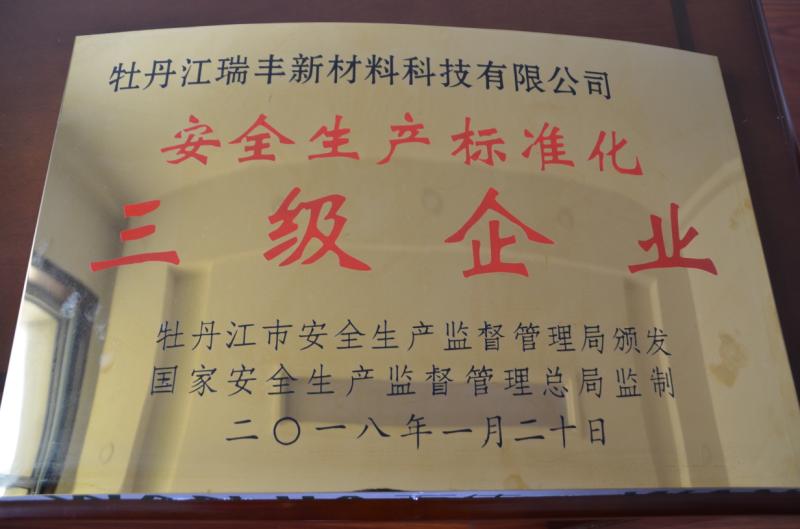 牡丹江瑞丰新材料科技有限公司
安全生产标准化
三级企业
牡丹江市安全生产监督管理局颁发
国家安全生产监督管理总局监制
二〇一八年一月二十日